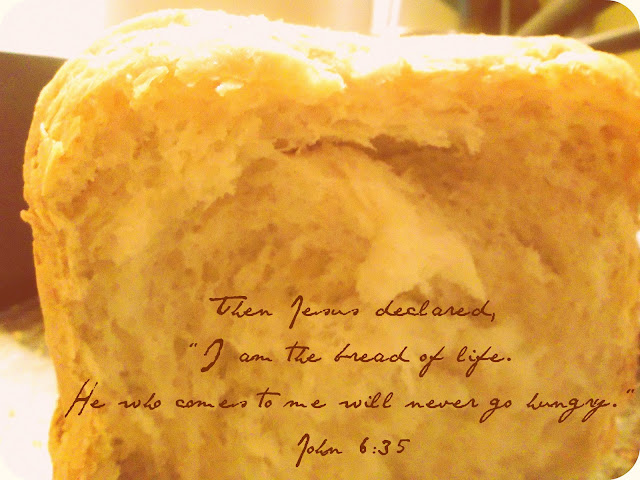 Then Jesus declared,
"I am the bread of life.
He who comes to me will never go hungry."
John 6:35